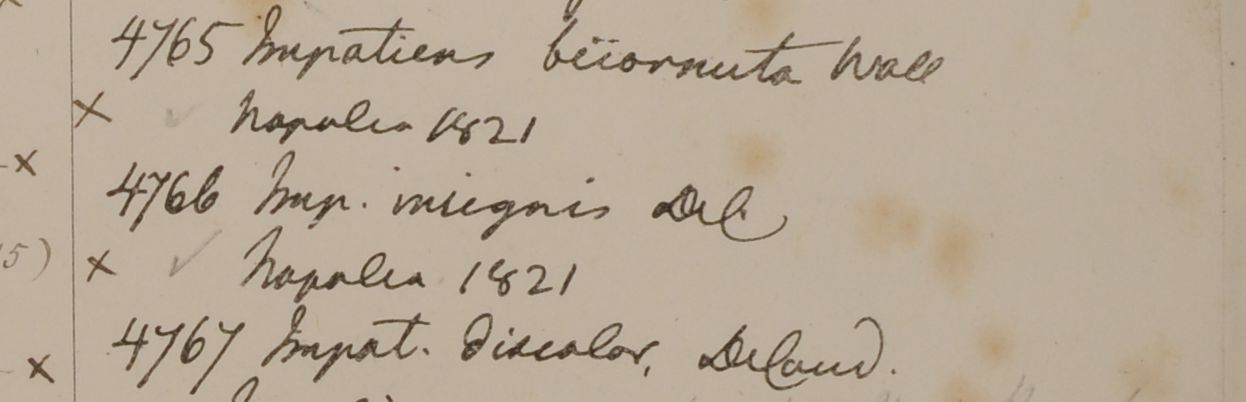 4765 Impatiens bicornuta Wall
× ✓ Napalia 1821
-×
4766 Imp. insignis DeC
5) × ✓ Napalia 1821
4767 Impat. discolor, DeCand.
×